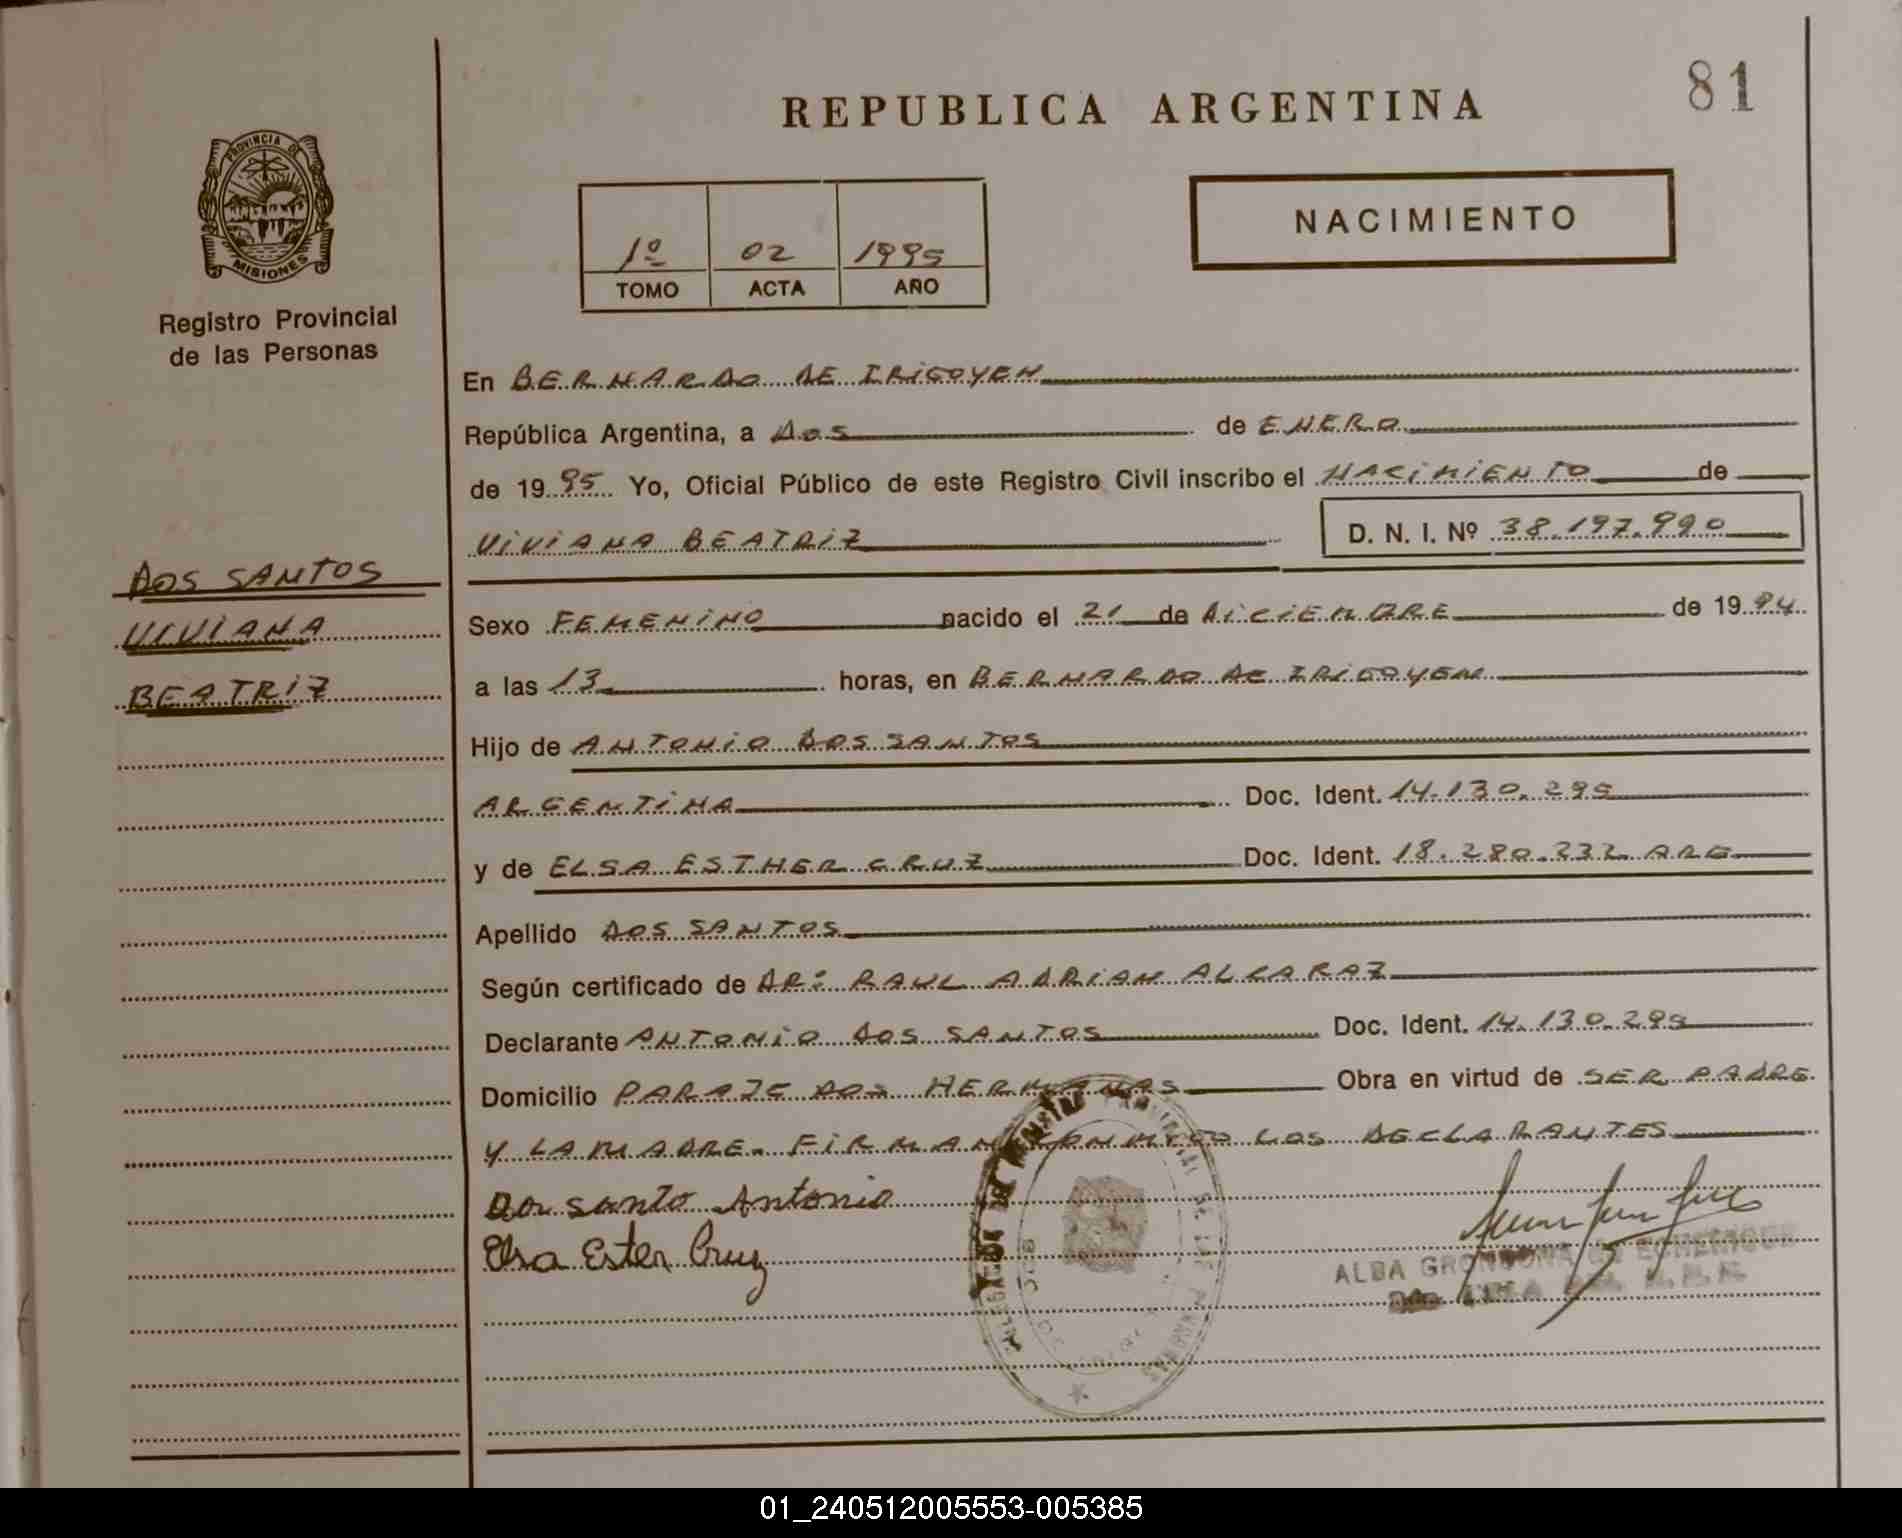 REPUBLICA ARGENTINA
81
PROVINCIA DE
MISIONES
Registro Provincial
de las Personas
NACIMIENTO
1º 02 1995
TOMO ACTA AÑO
En BERNARDO DE IRIGOYEN
República Argentina, a DOS de ENERO
de 1995 Yo, Oficial Público de este Registro Civil inscribo el NACIMIENTO de
VIVIANA BEATRIZ D. N. I. Nº 38.197.990
DOS SANTOS
VIVIANA
BEATRIZ
Sexo FEMENINO nacido el 21 de DICIEMBRE de 1994
a las 13 horas, en BERNARDO DE IRIGOYEN
Hijo de ANTONIO DOS SANTOS
ARGENTINA Doc. Ident. 14.130.295
y de ELSA ESTHER CRUZ Doc. Ident. 18.280.232 ARG
Apellido DOS SANTOS
Según certificado de DR: RAUL ADRIAN ALCARAZ
Declarante ANTONIO DOS SANTOS Doc. Ident. 14.130.295
Domicilio PARAJE DOS HERMANAS Obra en virtud de SER PADRE
Y LA MADRE. FIRMAN CONMIGO LOS DECLARANTES
Do santo Antonio
Elsa Ester Cruz
ALBA GRONDONA DE ECHENIQUE
01_240512005553-005385